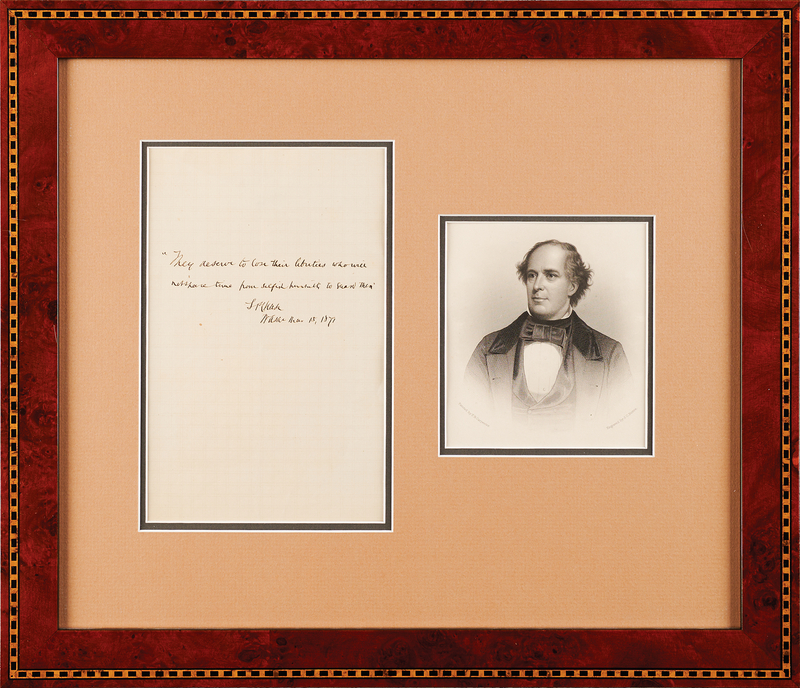 "They deserve to lose their liberties who will
not spare time from selfish pursuits to guard them"
S P Chase
Mar. 18, 187